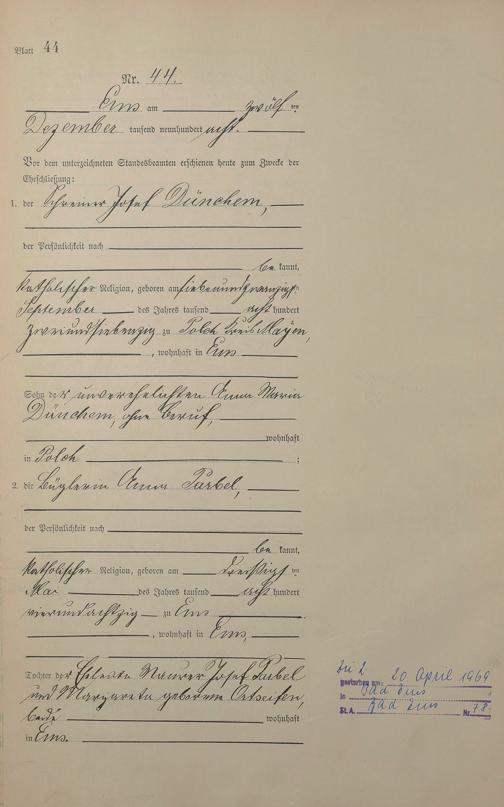 Blatt 44
Nr. 44.
Ems am zwölften
Dezember tausend neunhundert acht.
Vor dem unterzeichneten Standesbeamten erschienen heute zum Zwecke der
Eheschließung:
1. der Schreiner Josef Dünchem,
der Persönlichkeit nach
bekannt,
katholischer Religion, geboren am siebenundzwanzigsten
September des Jahres tausend acht hundert
zweiundsiebenzig zu Polch Kreis Mayen,
, wohnhaft in Ems
Sohn der unverehelichten Anna Maria
Dünchem, ohne Beruf,
wohnhaft
in Polch ;
2. die Büglerin Anna Parbel,
der Persönlichkeit nach
bekannt,
katholischer Religion, geboren am dreißigsten
Mai des Jahres tausend acht hundert
vierundachtzig zu Ems
, wohnhaft in Ems,
Tochter der Eheleute Maurer Josef Parbel
und Margareta geborene Ortseifen,
beide wohnhaft
in Ems.
zu 2
gestorben am: 20. April 1969
in Bad Ems
St.A. Bad Ems Nr. 78